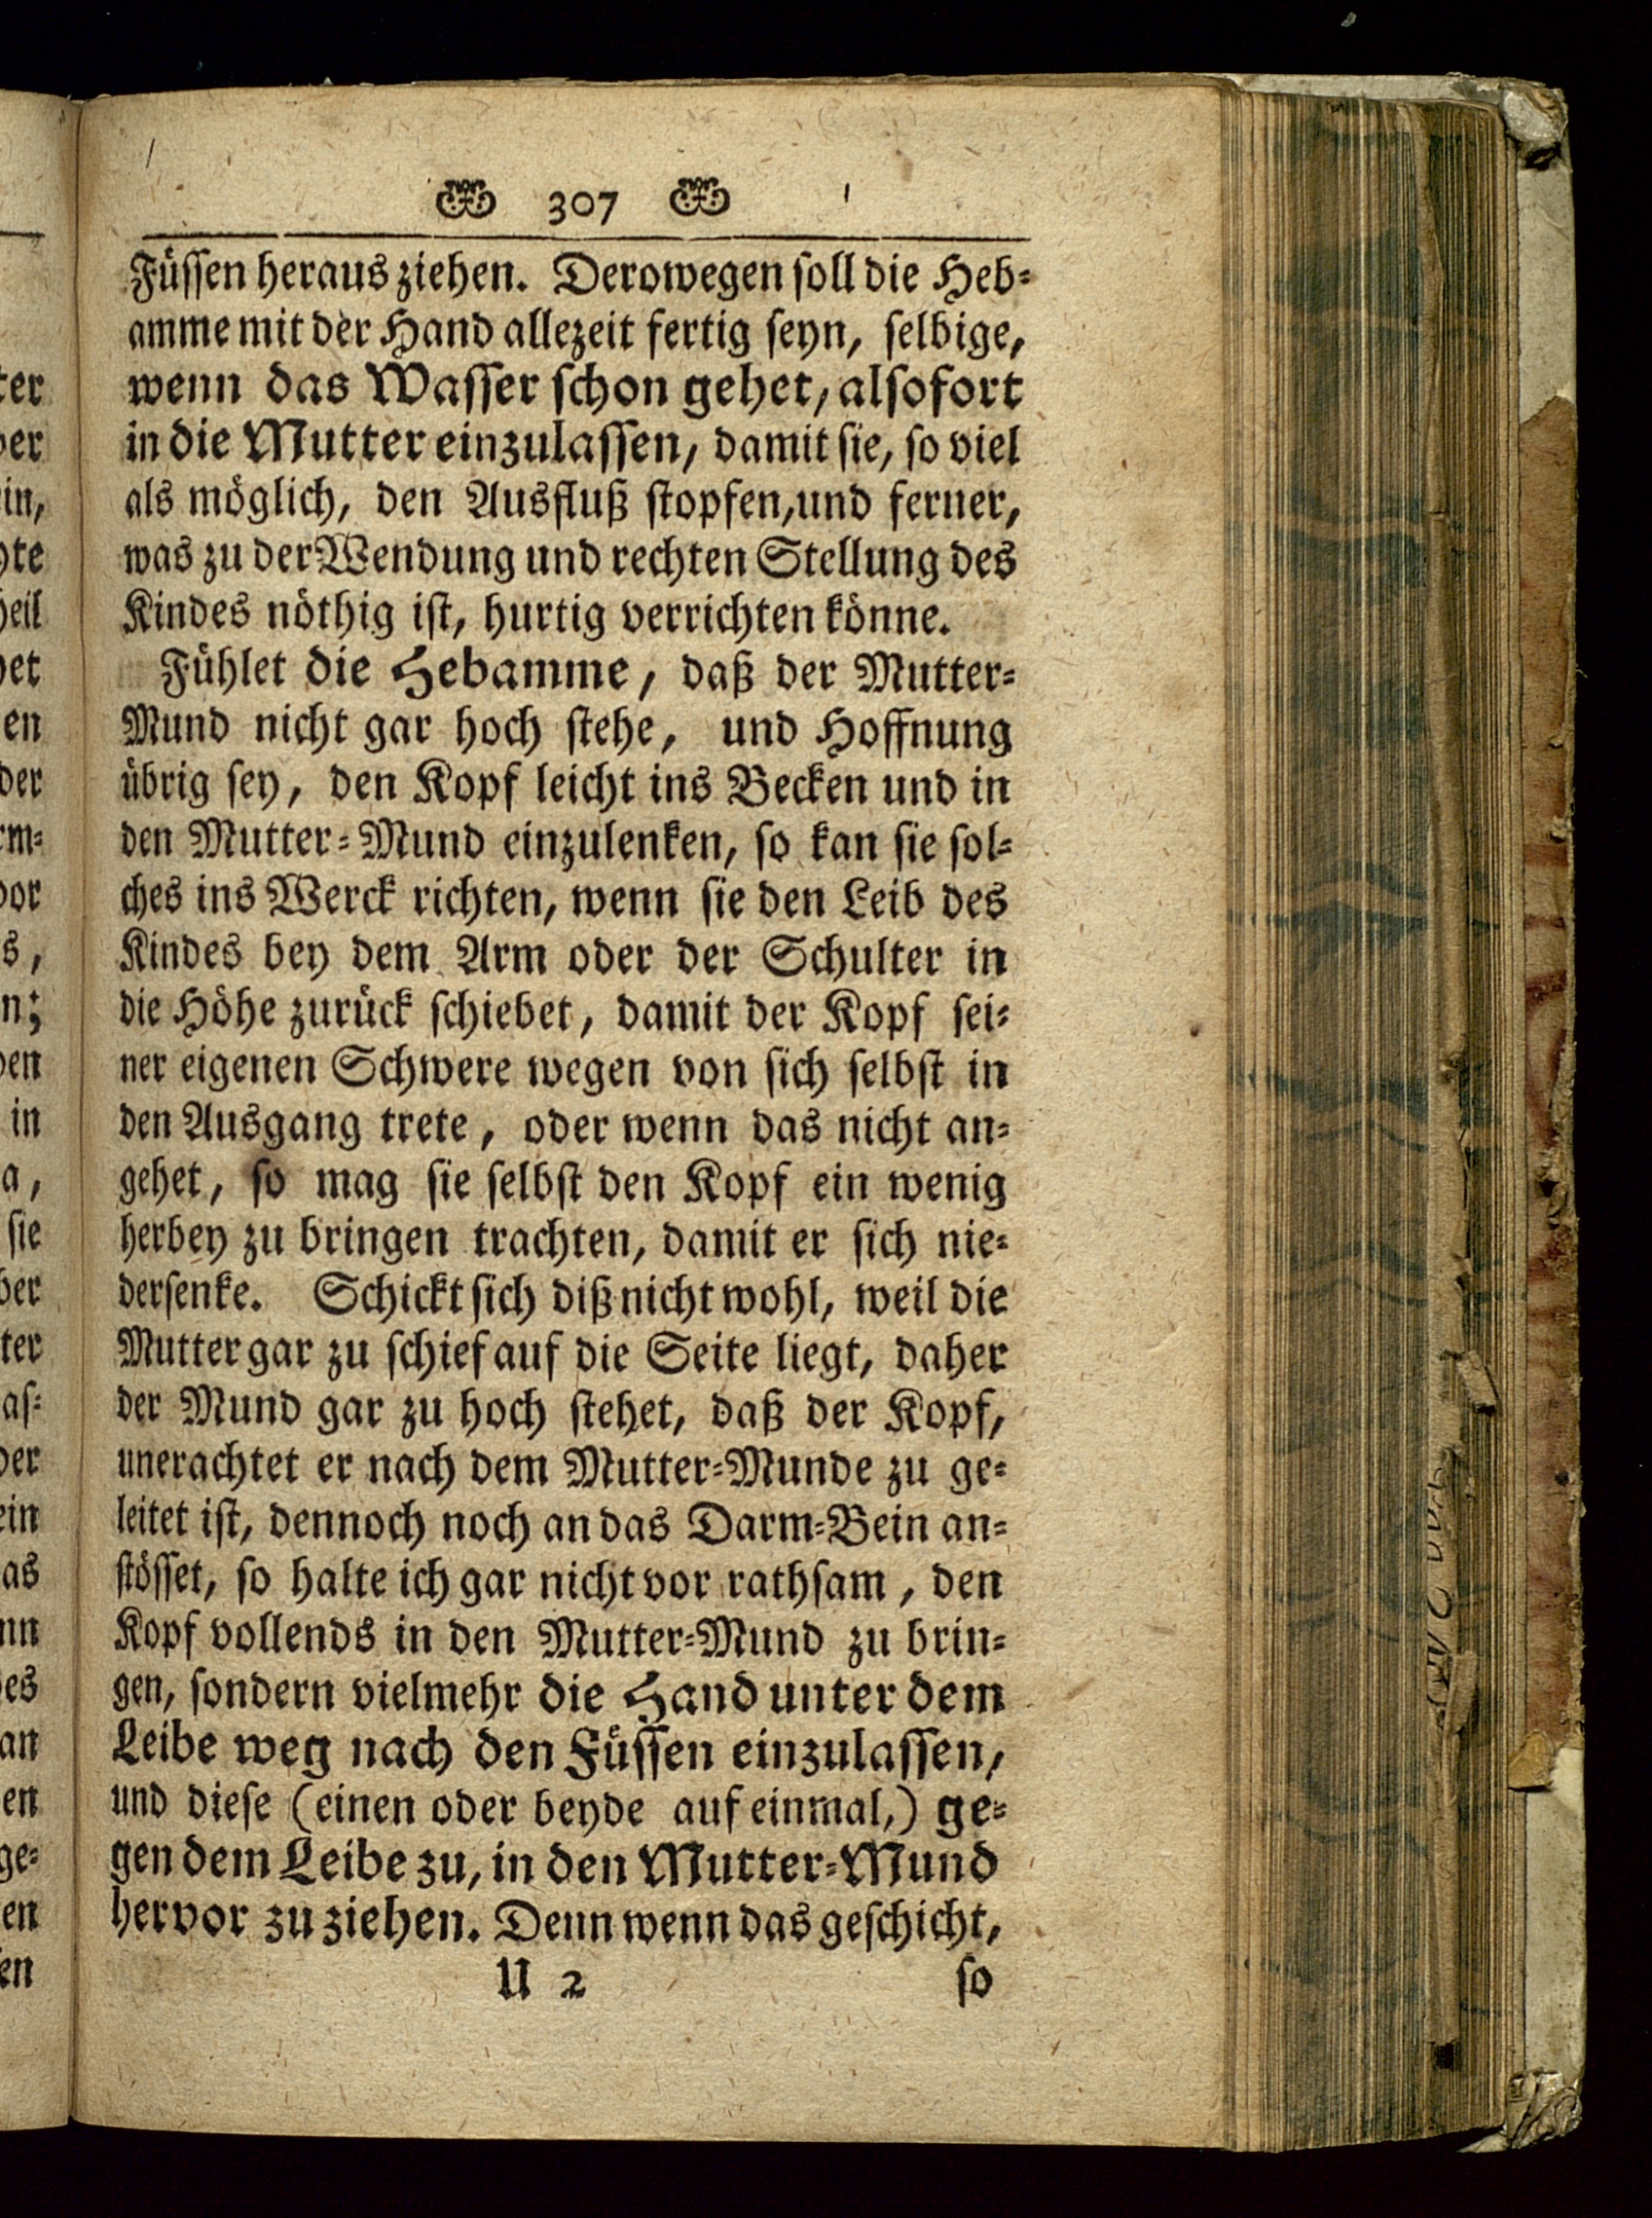 307
Füssen heraus ziehen. Derowegen soll die Heb-
amme mit der Hand allezeit fertig seyn, selbige,
wenn das Wasser schon gehet, alsofort
in die Mutter einzulassen, damit sie, so viel
als möglich, den Ausfluß stopfen, und ferner,
was zu der Wendung und rechten Stellung des
Kindes nöthig ist, hurtig verrichten könne.
Fühlet die Hebamme, daß der Mutter-
Mund nicht gar hoch stehe, und Hoffnung
übrig sey, den Kopf leicht ins Becken und in
den Mutter-Mund einzulenken, so kan sie sol-
ches ins Werck richten, wenn sie den Leib des
Kindes bey dem Arm oder der Schulter in
die Höhe zurück schiebet, damit der Kopf sei-
ner eigenen Schwere wegen von sich selbst in
den Ausgang trete, oder wenn das nicht an-
gehet, so mag sie selbst den Kopf ein wenig
herbey zu bringen trachten, damit er sich nie-
dersenke. Schickt sich diß nicht wohl, weil die
Mutter gar zu schief auf die Seite liegt, daher
der Mund gar zu hoch stehet, daß der Kopf,
unerachtet er nach dem Mutter-Munde zu ge-
leitet ist, dennoch noch an das Darm-Bein an-
stösset, so halte ich gar nicht vor rathsam, den
Kopf vollends in den Mutter-Mund zu brin-
gen, sondern vielmehr die Hand unter dem
Leibe weg nach den Füssen einzulassen,
und diese (einen oder beyde auf einmal,) ge-
gen dem Leibe zu, in den Mutter-Mund
hervor zu ziehen. Denn wenn das geschicht,
U 2 so